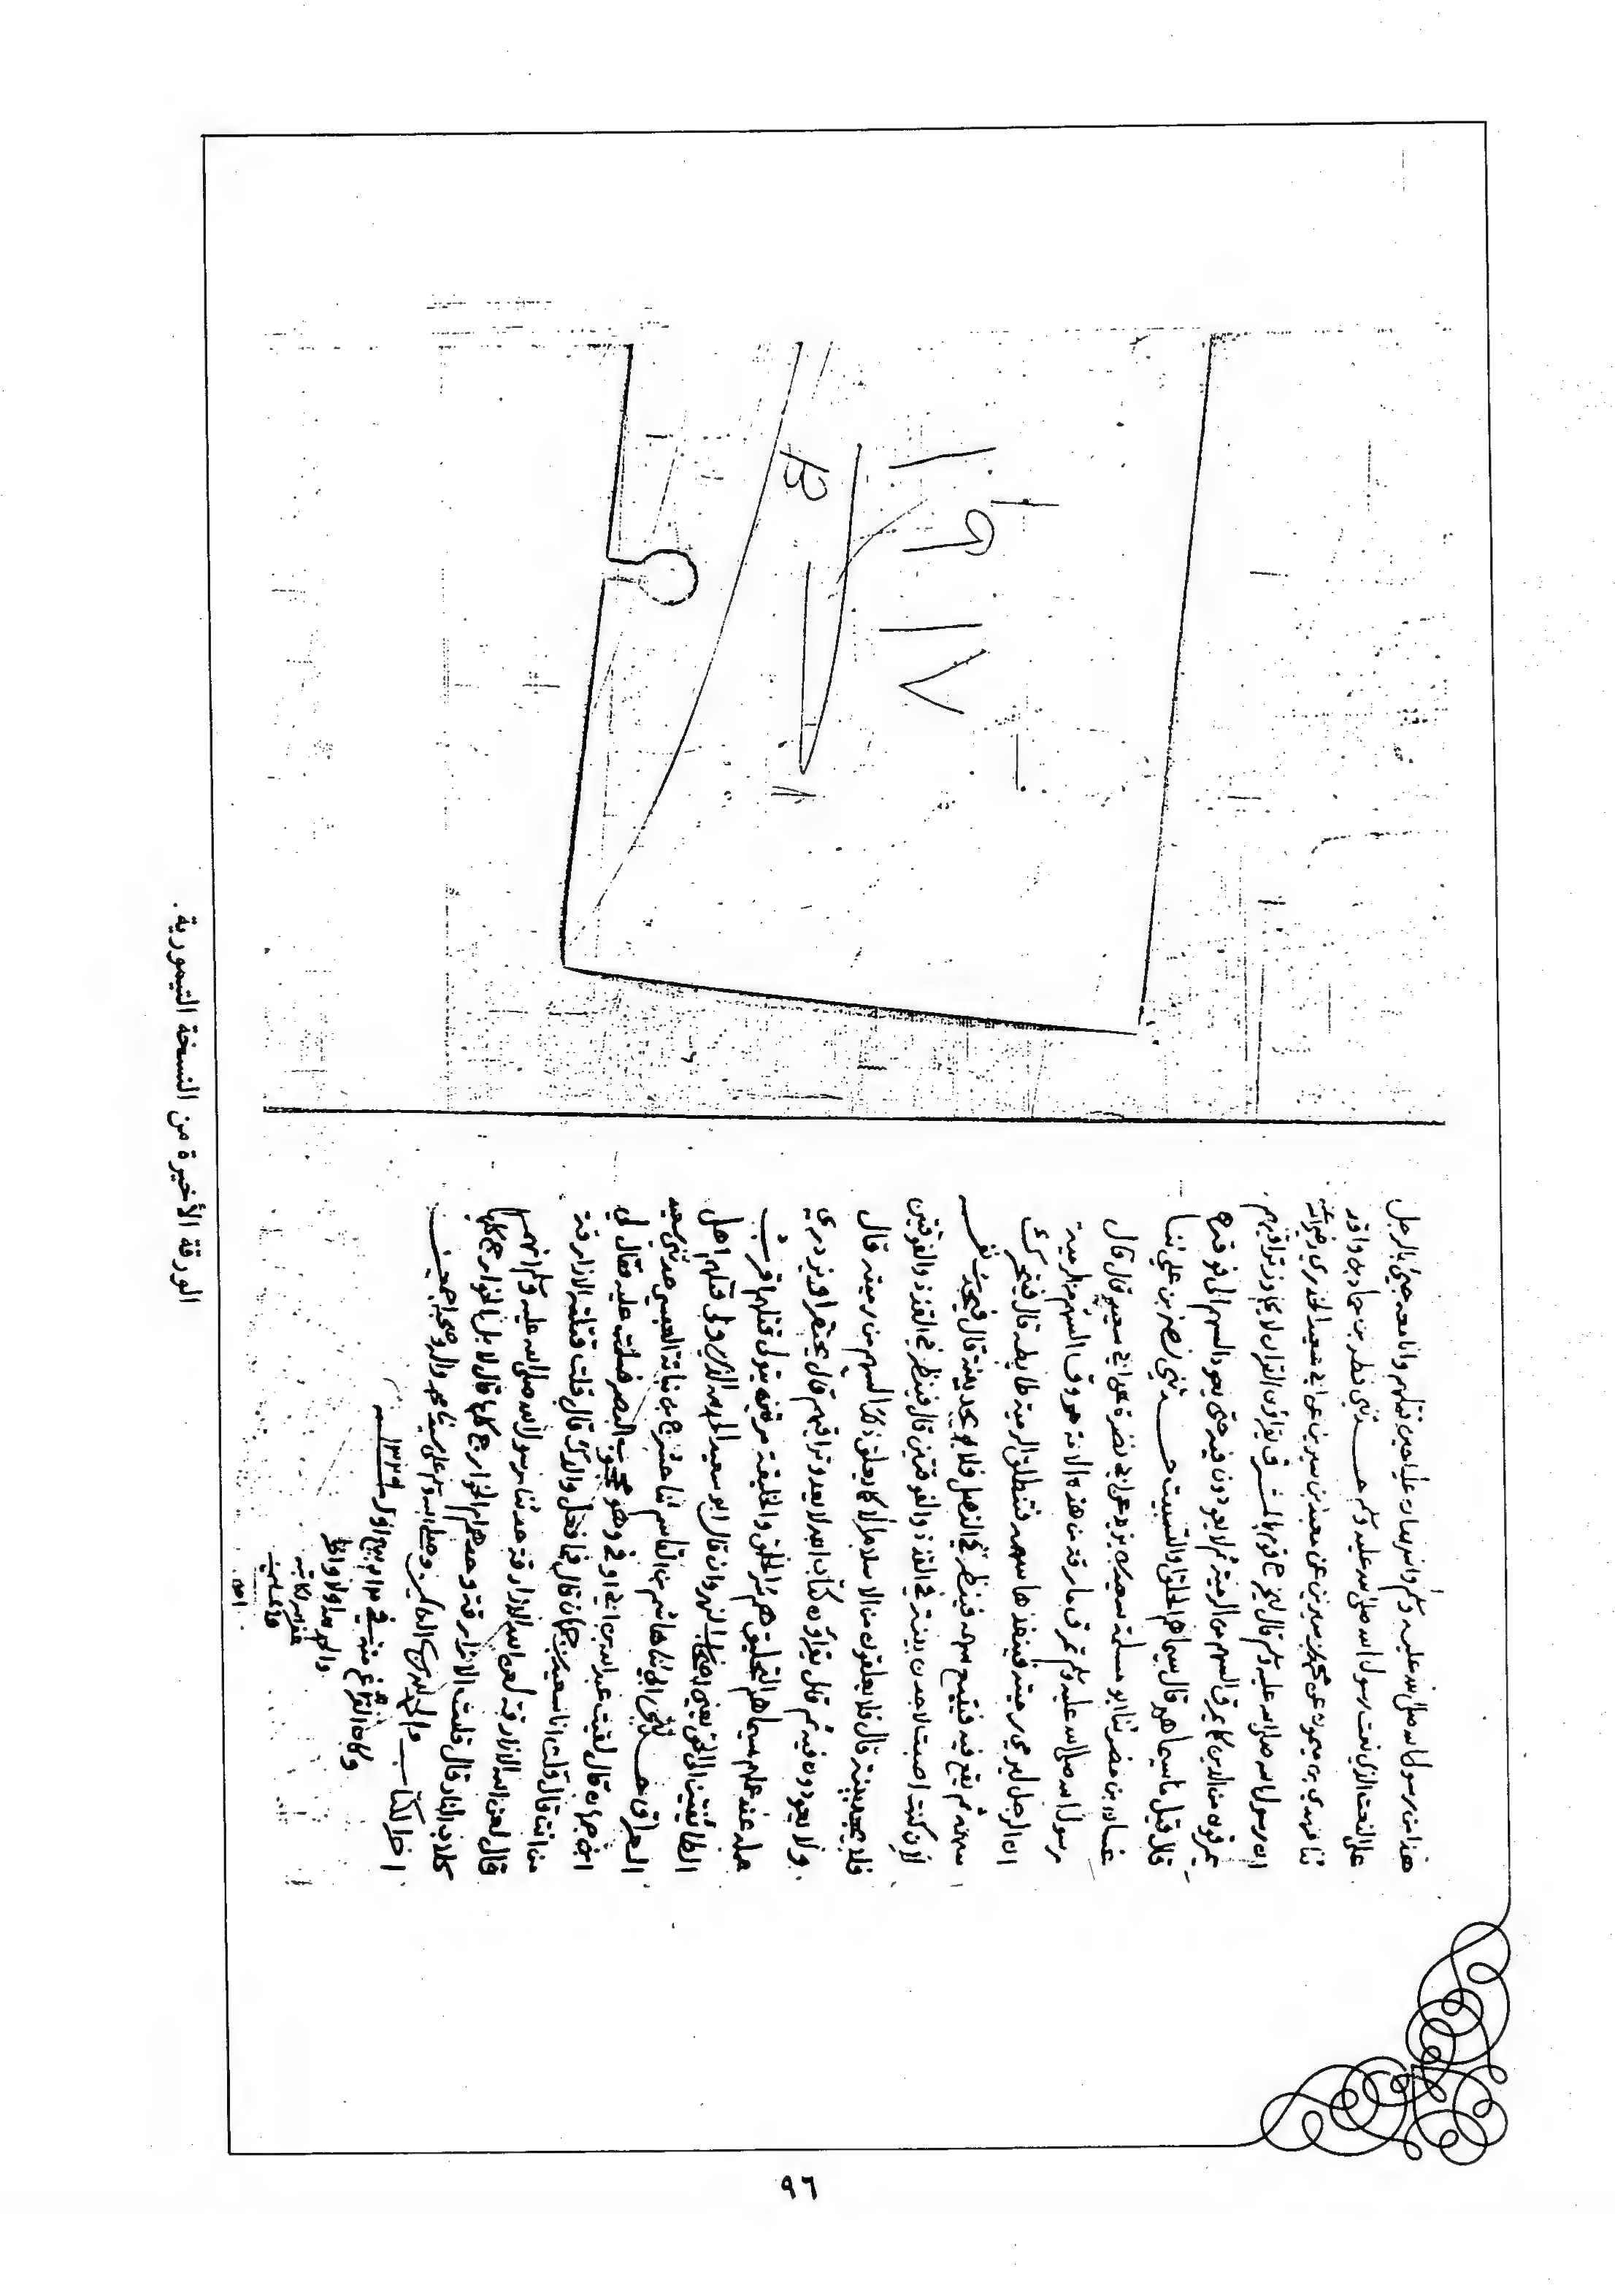 هذا من رسول الله صلى الله عليه وسلم وأشهد أن عليا حين قتلهم وأنا معه جيئ بالرجل
على النعت الذي نعت رسول الله صلى الله عليه وسلم حدثني قطر بن حماد بن واقد
ثنا مهدي بن ميمون عن محمد بن سيرين عن معبد بن سيرين عن أبي سعيد الخدري رضي الله عنه
ان رسول الله صلى الله عليه وسلم قال يخرج قوم قبل المشرق يقرأون القران لا يجاوز تراقيهم
يمرقون من الدين كما يمرق السهم من الرمية ثم لا يعودون فيه حتى يعود السهم الى فوقه
قال قيل ما سيماهم قال سيماهم الحلق والتسبيت حدثني نصر بن علي ثنا
غسان بن مضر ثنا ابو مسلمة سعيد بن يزيد عن ابي نضرة عن ابي سعيد قال قال
رسول الله صلى الله عليه وسلم تمرق مارقة من هذه الامة مروق السهم من الرمية
ان الرجل ليرمي رميته فينفذها سهمه فتنطلق الرمية قال فيتحرك
سهمه ثم يقع فيه فينظر في النصل فلا يجد بينة قال
لان كنت اصبت لاجدن بينة في القذذ والفوقين قال فينظر في القذذ والفوقين
فلا يجد بينة قال فلا يعلقون من الاسلام الا كما يعلق ذلك السهم من رميته قال
ولا يعودون فيه ثم قال يقرأون كتاب الله لا يعدو تراقيهم قال يحتقر او يزدري
عمله عند عملهم سيماهم التحليق هم شر الخلق والخليقة مرتين يتولى قتلهم اقرب
الطائفتين الى الحق يعني اصحاب النهروان قال ابو سعيد الحمد لله الذي ولى قتلهم اهل
العراق حدثني ابي ثنا هاشم بن القاسم ثنا حشرج بن نباتة العبسي حدثني سعيد
ابن جمهان قال لقيت عبد الله بن ابي اوفى وهو محجوب البصر فسلمت عليه فقال لي
من انت قال قلت انا سعيد بن جمهان قال فما فعل والدك قال قلت قتلته الازارقة
قال لعن الله الازارقة لعن الله الازارقة حدثنا رسول الله صلى الله عليه وسلم انهم
كلاب النار قال قلت الازارقة وحدهم ام الخوارج كلها قال لا بل الخوارج كلها
اخر الكتاب والحمد لله رب العالمين وصلى الله وسلم على سيدنا محمد وآله وصحبه اجمعين
وكان الفراغ منه في يوم ربيع اول سنة ١٣٢٩
والحمد لله اولا واخرا
الورقة الأخيرة من النسخة التيمورية .
٩٦